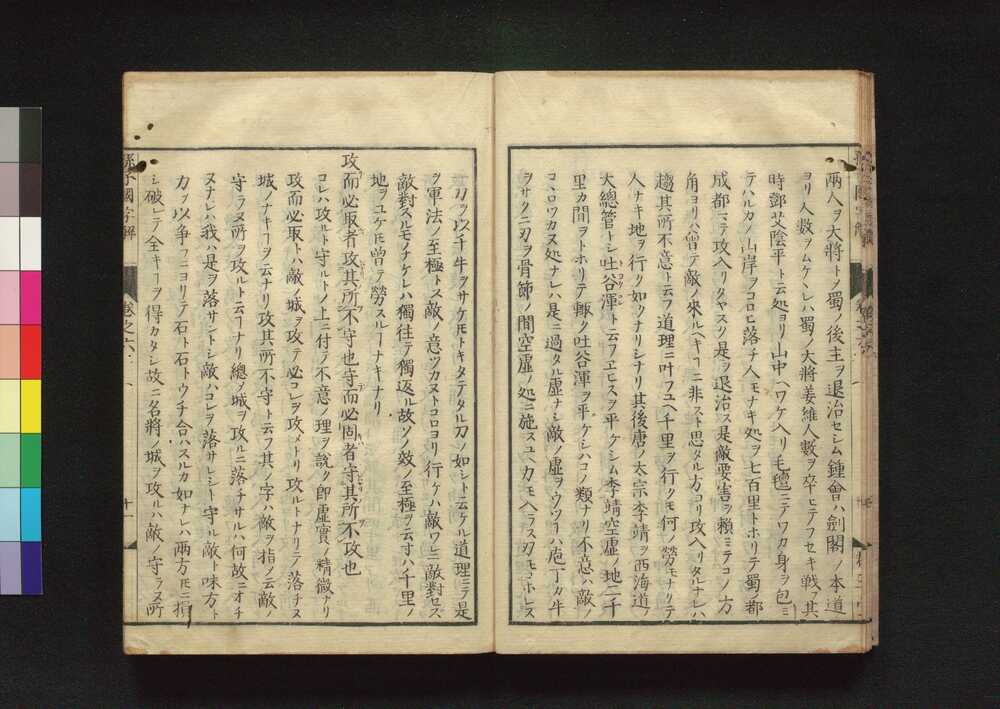 兩人ヲ大將トヲ蜀ノ後主ヲ退治セシム鍾會ハ劍閣ノ本道
ヨリ人數ヲムケケレハ蜀ノ大將姜維人數ヲ卒ヒテフセキ戰フ其
時鄧艾陰平ト云処ヨリ山中ヘワケ入リ毛氊ニテワカ身ヲ包ミ
テハルカノ山岸ヲコロヒ落チ人モナキ処ヲ七百里トホリテ蜀ノ都
成都ニテ攻入リタヤスク是ヲ退治ス是敵要害ヲ賴ミテコノ方
角ヨリハ曽テ敵ノ來ルヘキヿニ非スト思タル方ヨリ攻入リタルナレハ
趨其所不意ト云フ道理ニ叶フユヘ千里ヲ行クモ何ノ勞モナクテ
人ナキ地ヲ行ク如クナリシナリ其後唐ノ太宗李靖ヲ西海道ノ
大總管トシ吐谷渾ト云フヱヒスヲ平ケシム李靖空虛ノ地二千
里カ間ヲトホリテ輙ク吐谷渾ヲ平ケシハコノ類ナリ不意ハ敵ノ
コヽロツカヌ処ナレハ是ニ過タル虛ナシ敵ノ虛ヲウツヿハ庖丁カ牛
ヲサクニ刃ヲ骨節ノ間空虛ノ処ニ施スユヘ力モヘラス刃モコホレス
一刀ヲ以千牛ヲサケモトキタテタル刀ノ如シト云ケル道理ニテ是
ヲ軍法ノ至極トス敵ノ意ツカヌトコロヨリ行ケハ敵ワレニ敵對セス
敵對スルモノナケレハ獨往テ獨返ル故ソノ效ノ至極ヲ云寸ハ千里ノ
地ヲユケモ曽テ勞スルヿナキナリ
攻而必取者攻其所不守也守而必固者守其所不攻也
コレハ攻ルト守ルトノ上ニ付テ不意ノ理ヲ說ク卽虛實ノ精微ナリ
攻而必取トハ敵ノ城ヲ攻テ必コレヲ攻メトリ攻ルトナリテ落ナヌ
城ハナキヿヲ云ナリ攻其所不守ト云フ其ノ字ハ敵ヲ指ノ云敵ノ
守ラヌ所ヲ攻ルト云ヿナリ總ノ城ヲ攻ルニ落チサルハ何故ニオチ
ヌナレハ我ハ是ヲ落サントシ敵ハコレヲ落サレシト守ル敵ト味方ト
力ヲ以爭フニヨリテ石ト石トウチ合ハスルカ如ナレハ兩方𪜈ニ損
シ破レテ全キヿヲ得カタシ故ニ名將ノ城ヲ攻ルハ敵ノ守ラヌ所
孫子國字解
卷之六
十一